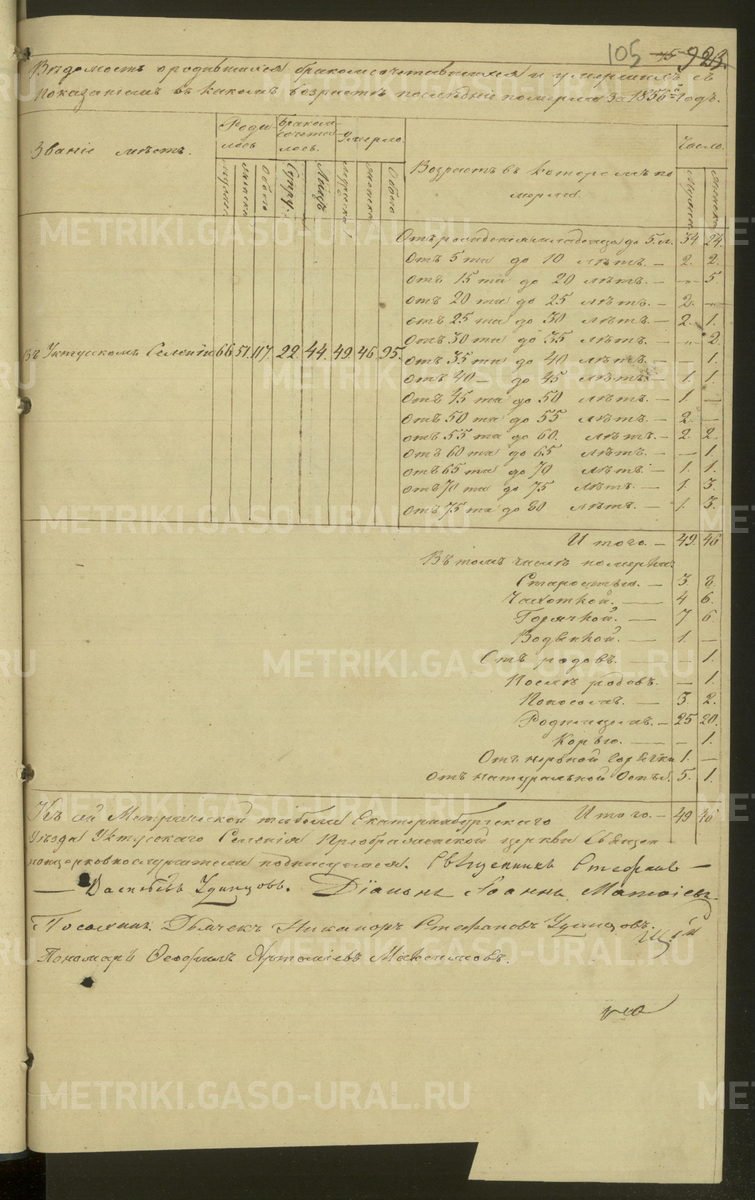 105 923.
Вѣдомость о родившихся бракомсочетавшихся и умершихъ съ
показаніемъ въ какомъ возрастѣ послѣдніе померли за 1850й годъ.
Званіе мѣстъ.
Роди лось
Браком сочета лось.
Умерло.
Возрастъ въ которомъ по мерли.
Число.
мужска женска Обоего Супру. Лицъ мужска женска Обоего
Мужска женска
Отъ рожденія младенца до 5 л. 34 24
Отъ 5 та до 10 лѣтъ. — 2. 2.
Отъ 15 та до 20 лѣтъ. — „ 5
Отъ 20 та до 25 лѣтъ. — 2. —
Отъ 25 та до 30 лѣтъ. — 2. 1.
Отъ 30 та до 35 лѣтъ. — „ 2
Въ Уктусскомъ Селеніи 66. 51. 117. 22. 44. 49. 46. 95.
Отъ 35 та до 40 лѣтъ. — — 1.
Отъ 40 — до 45 лѣтъ. — 1. 1.
Отъ 45 та до 50 лѣтъ. — 1. —
Отъ 50 та до 55 лѣтъ. — 2. —
Отъ 55 та до 60. лѣтъ. — 2. 2.
Отъ 60 та до 65 лѣтъ. — — 1.
Отъ 65 та до 70 лѣтъ. — 1. 1.
Отъ 70 та до 75 лѣтъ. — 1. 3.
Отъ 75 та до 80 лѣтъ. — 1. 3.
Итого. — 49. 46
Въ томъ числѣ померли:
Старостью. — 3 8
Чахоткой. — 4 6.
Горячкой. — 7 6
Водянкой. — 1 —
Отъ родовъ. — — 1.
Послѣ родовъ. — — 1.
Поносомъ. — 3 2.
Родимцомъ. — 25 20.
Корью. — — 1.
Отъ нервной Горячки 1. —
Отъ натуральной Оспы. 5. 1.
Итого — 49 46
Къ сей Метрической табели Екатеринбургского
Уѣзда Уктусскаго Селенія Преображенской церкви Священ
ноцерковнослужители подписуемся. Священникъ Стефанъ —
— Удинцовъ. Діаконъ Іоаннъ
Дьячекъ Никаноръ Стефановъ Удинцовъ.
Пономарь Ѳеофилъ Максимовъ.
METRIKI.GASO-URAL.RU